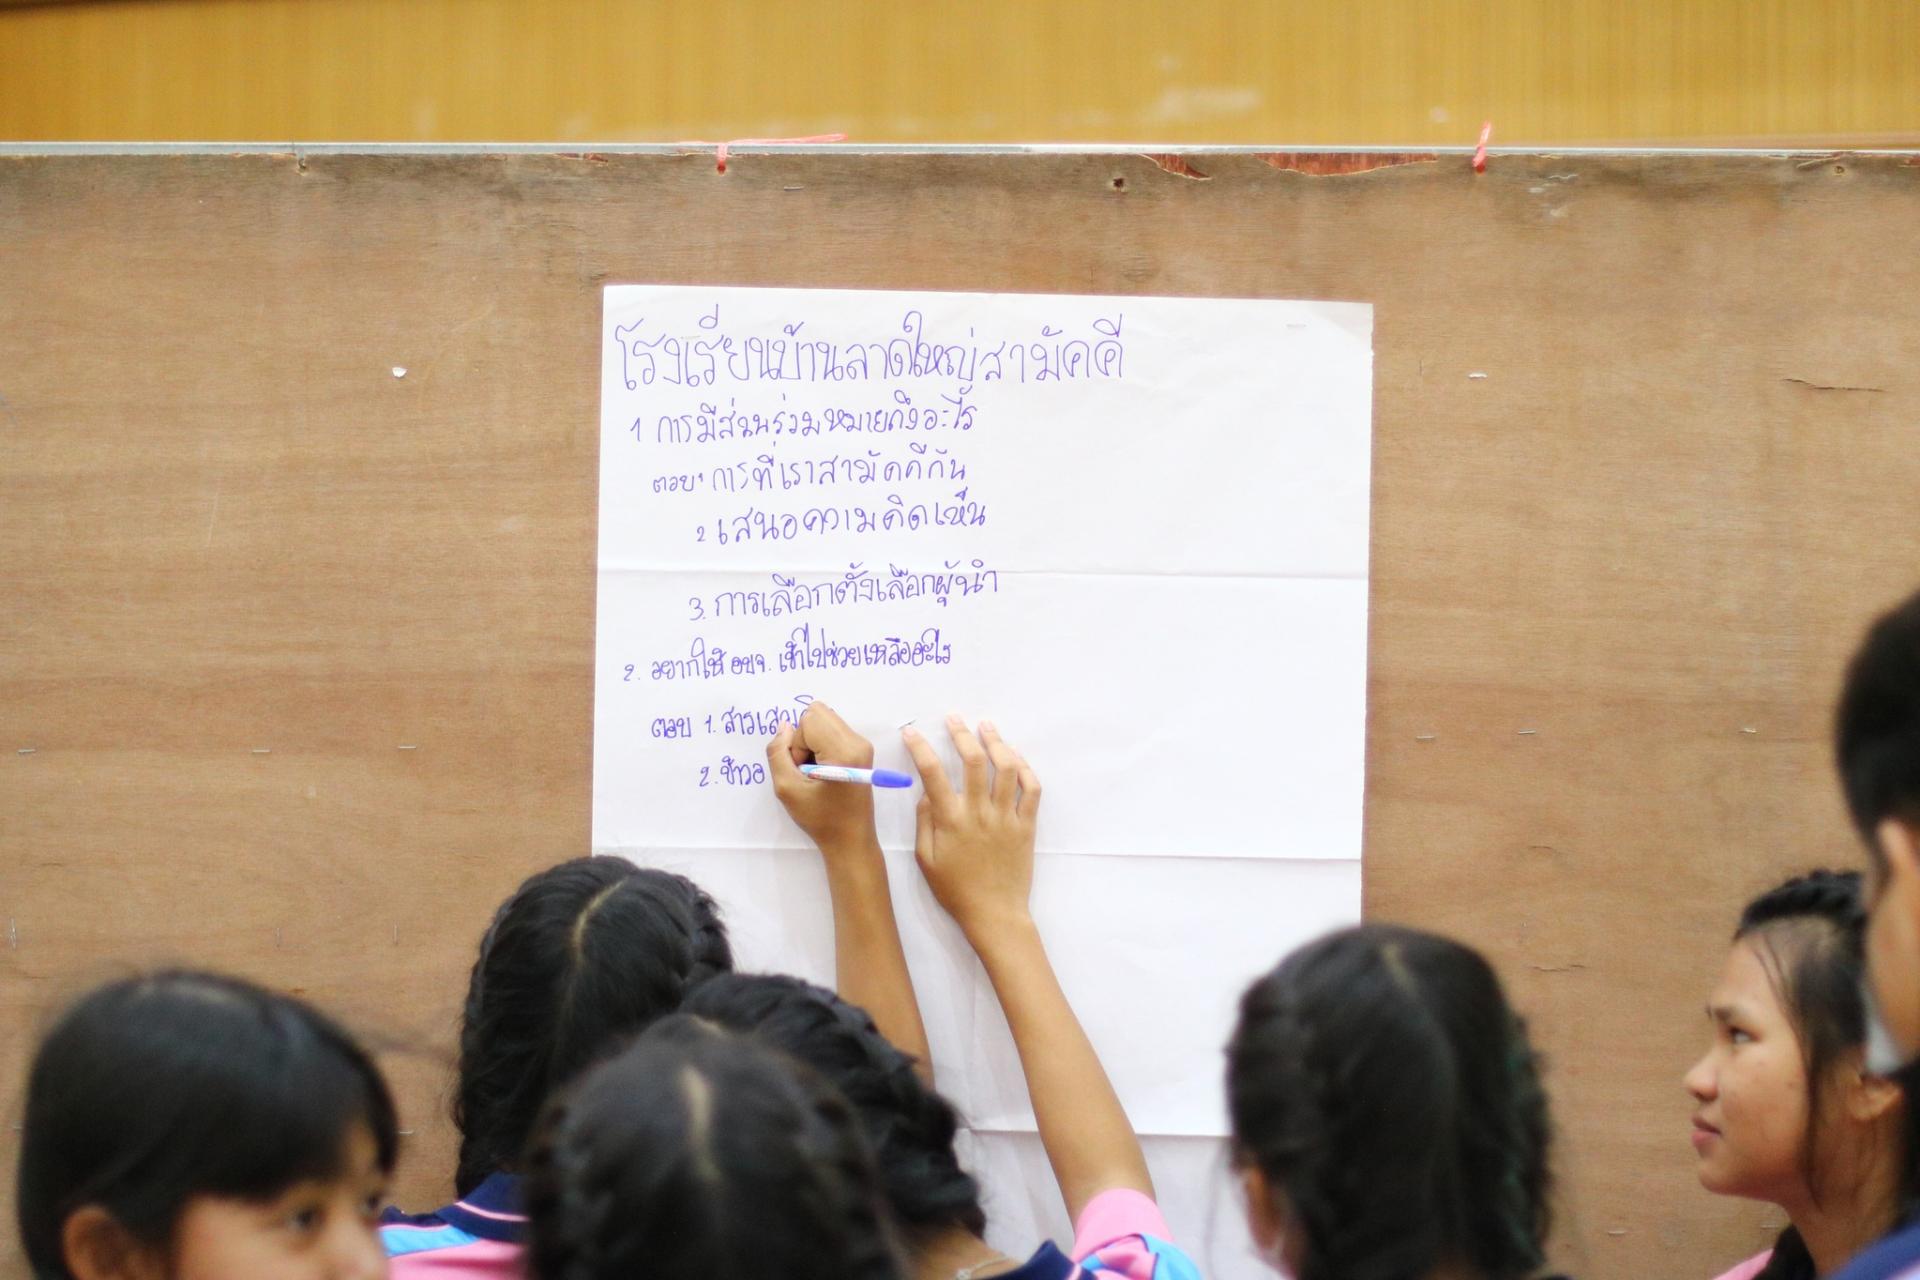 โรงเรียนบ้านลาดใหญ่สามัคคี
1 การมีส่วนร่วมหมายถึงอะไร
ตอบ 1 การที่เราสามัคคีกัน
2 เสนอความคิดเห็น
3. การเลือกตั้งเลือกผู้นำ
2. อยากให้ อบจ. เข้าไปช่วยเหลืออะไร
ตอบ 1. สารเสพติด
2.